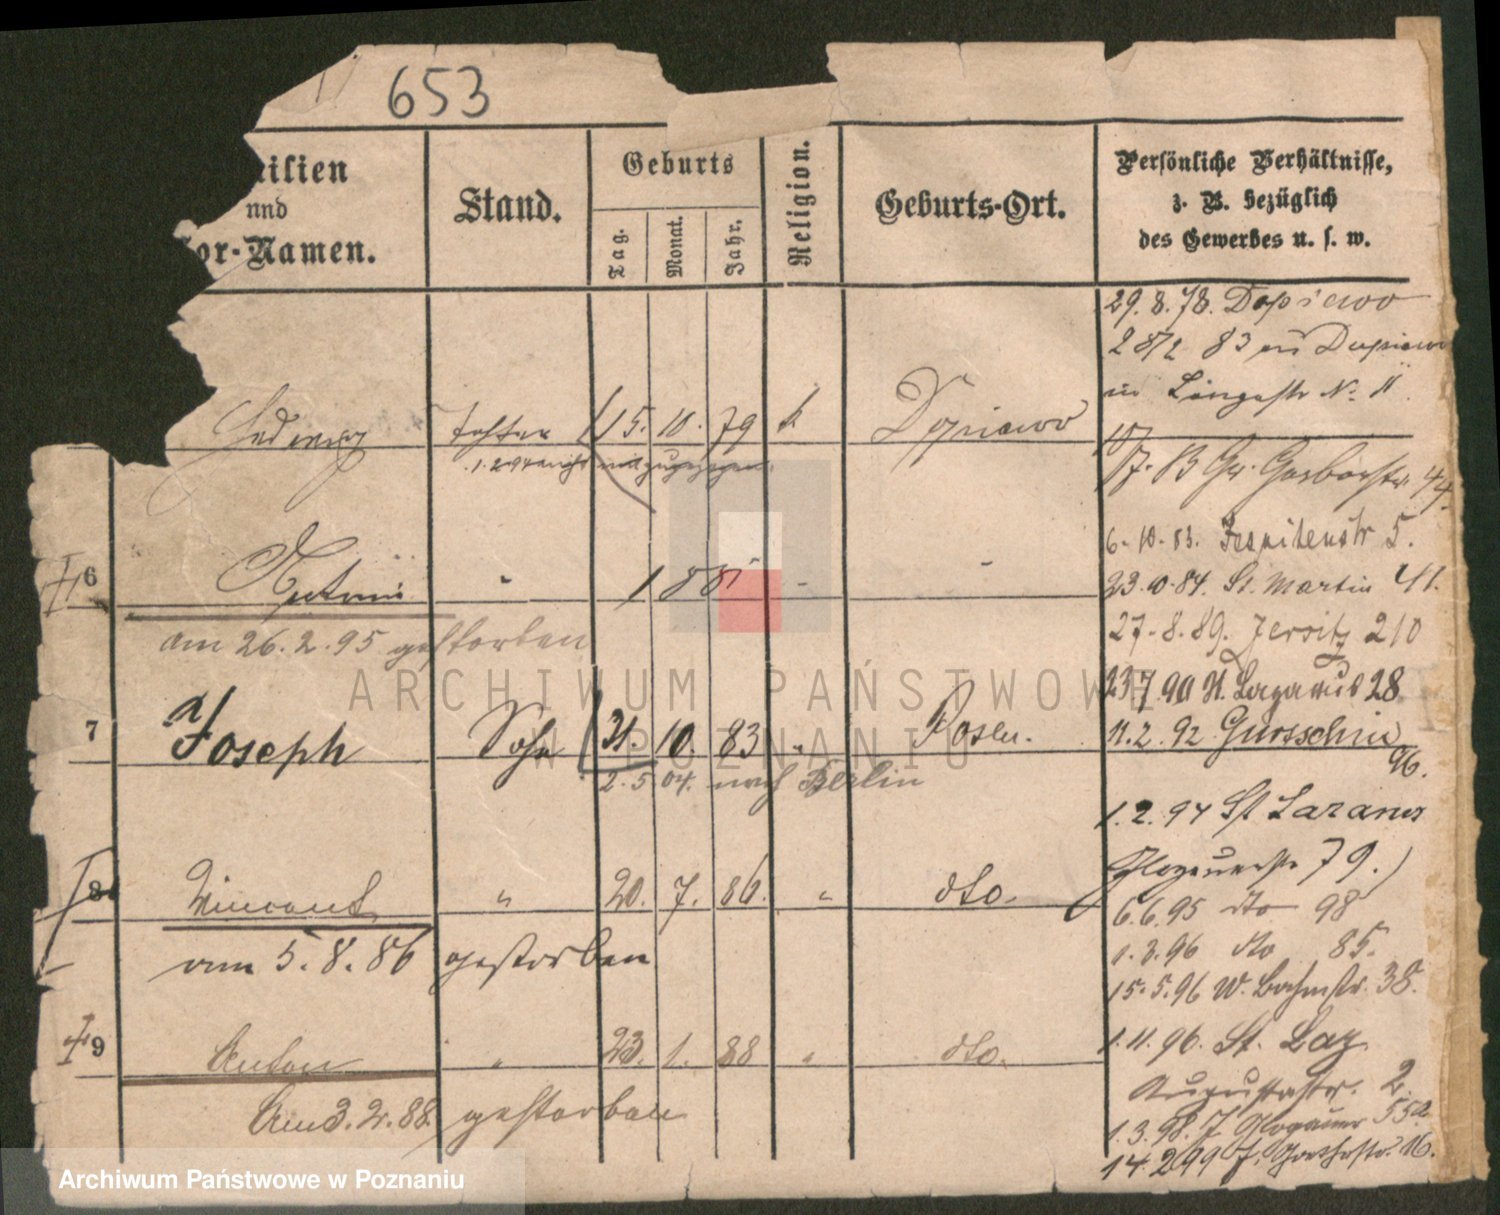 653
ilien
und
or-Namen.
Stand.
Geburts
Tag.
Monat.
Jahr.
Religion.
Geburts-Ort.
Persönliche Verhältnisse,
z. B. bezüglich
des Gewerbes u. s. w.
29. 8. 78. Dopiewo
83 Dopiewo
in Langestr No 11.
Hedwig Tochter 15. 10. 79 k Dopiewo
1.2.94 nicht mitzugezogen.
17. 83 Gr. Gerberstr. 44
6. 10. 83. Jesuitenstr 5.
6 " " "
23. 10. 84. St. Martin 41.
am 26. 2. 95 gestorben
27. 8. 89. Jersitz 210
23 7 90 St. Lazarus 28
7 Joseph Sohn 31. 10. 83 " Posen.
11. 2. 92 Gurtschin
96.
2. 5. 04. nach Berlin
1. 2. 94 St Lazarus
Glogauerstr 79.
8 Vincent " 20. 7. 86. " dto.
6. 6. 95 dto 98
am 5. 8. 86 gestorben
1. 3. 96 dto 85.
15. 5. 96 W. Bahnstr. 38.
9 Anton " 23. 1. 88 " dto.
1. 11. 96. St. Laz.
Augustastr. 2.
Am 3. 2. 88. gestorben
1. 3. 98. J. Glogauer 55a
14. 2 99 J. Goethestr. 16.
ARCHIWUM PAŃSTWOWE
W POZNANIU
Archiwum Państwowe w Poznaniu